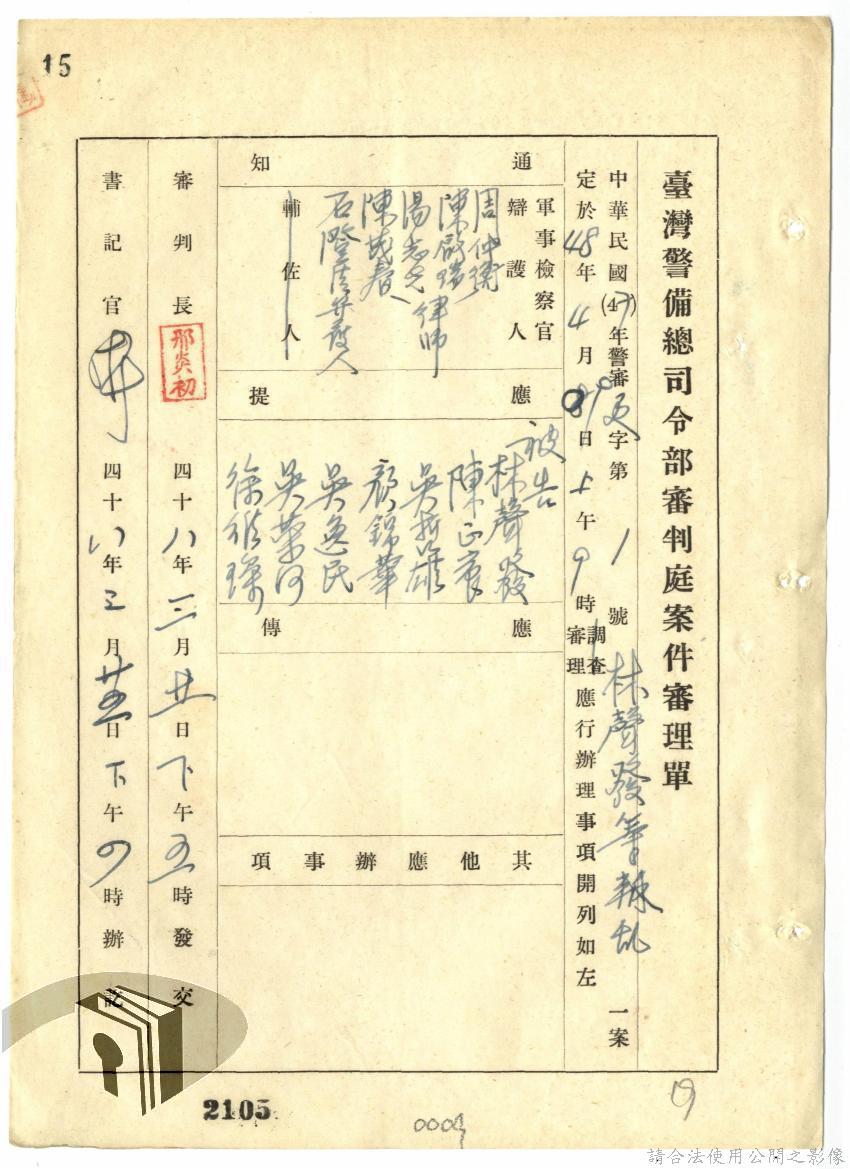 15
臺灣警備總司令部審判庭案件審理單
中華民國(47)年警審更字第1號林聲發等叛乱一案
定於48年4月 日上午9時調查審理應行辦理事項開列如左
通知
軍事檢察官
辯護人
周仲
陳啟瑞
湯志 律師
陳茂春
石 辯護人
輔佐人
應提
被告
林聲發
陳正宸
吳哲雄
顏錦華
吳逸民
吳榮河
徐 璨
應傳
其他應辦事項
審判長 邢炎初 四十八年三月廿 日下午五時發交
書記官 四十八年三月 日下午 時辦訖
2105
請合法使用公開之影像